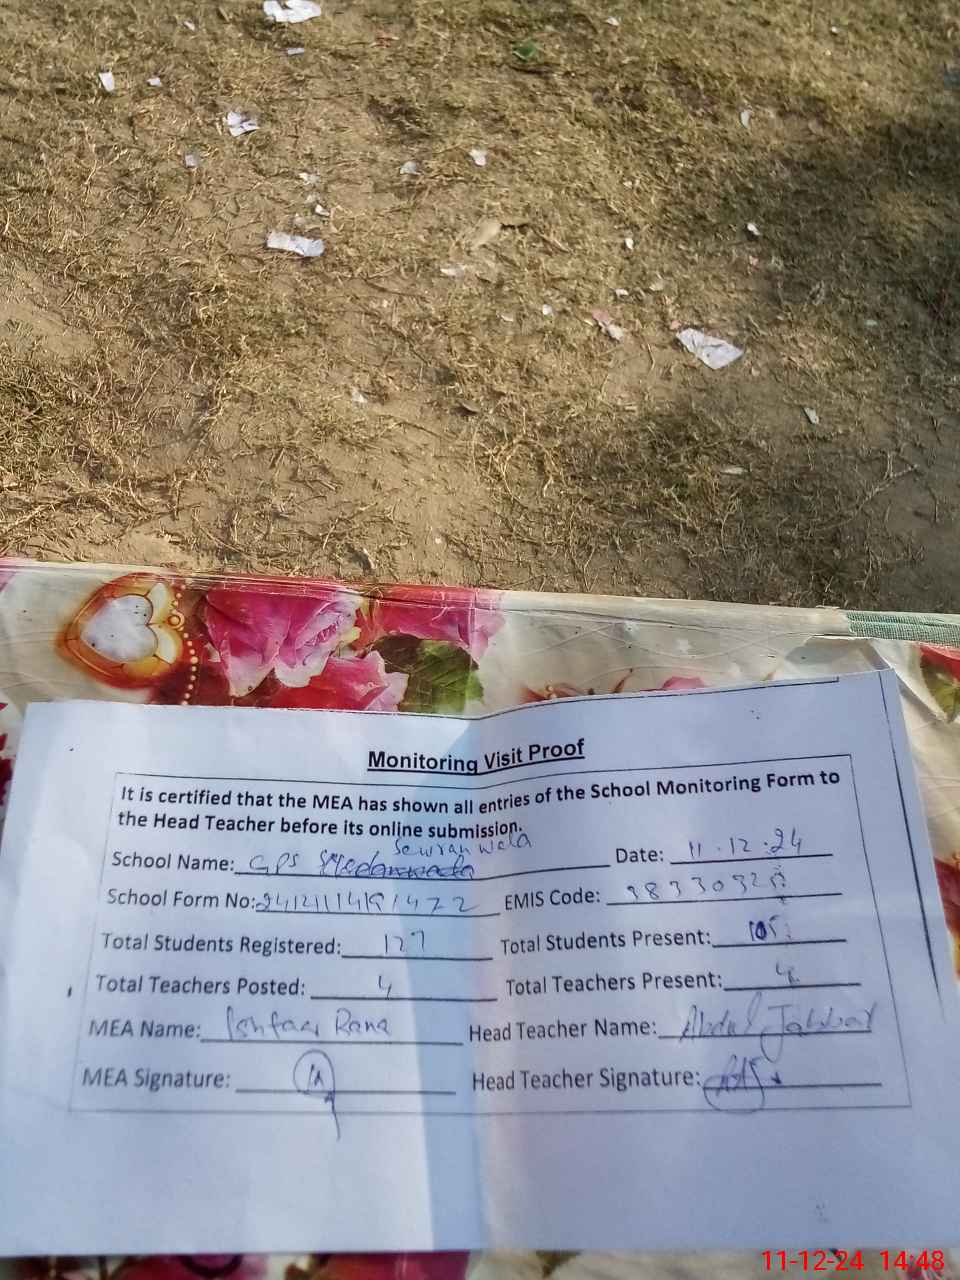 Monitoring Visit Proof
It is certified that the MEA has shown all entries of the School Monitoring Form to
the Head Teacher before its online submission.
Sewran wala
School Name: GPS Date: 11.12.24
School Form No: EMIS Code: 38330325
Total Students Registered: 127 Total Students Present: 105
Total Teachers Posted: 4 Total Teachers Present: 4
MEA Name: Ishfaq Rana Head Teacher Name: Abdul Jabbar
MEA Signature: Head Teacher Signature:
11-12-24 14:48